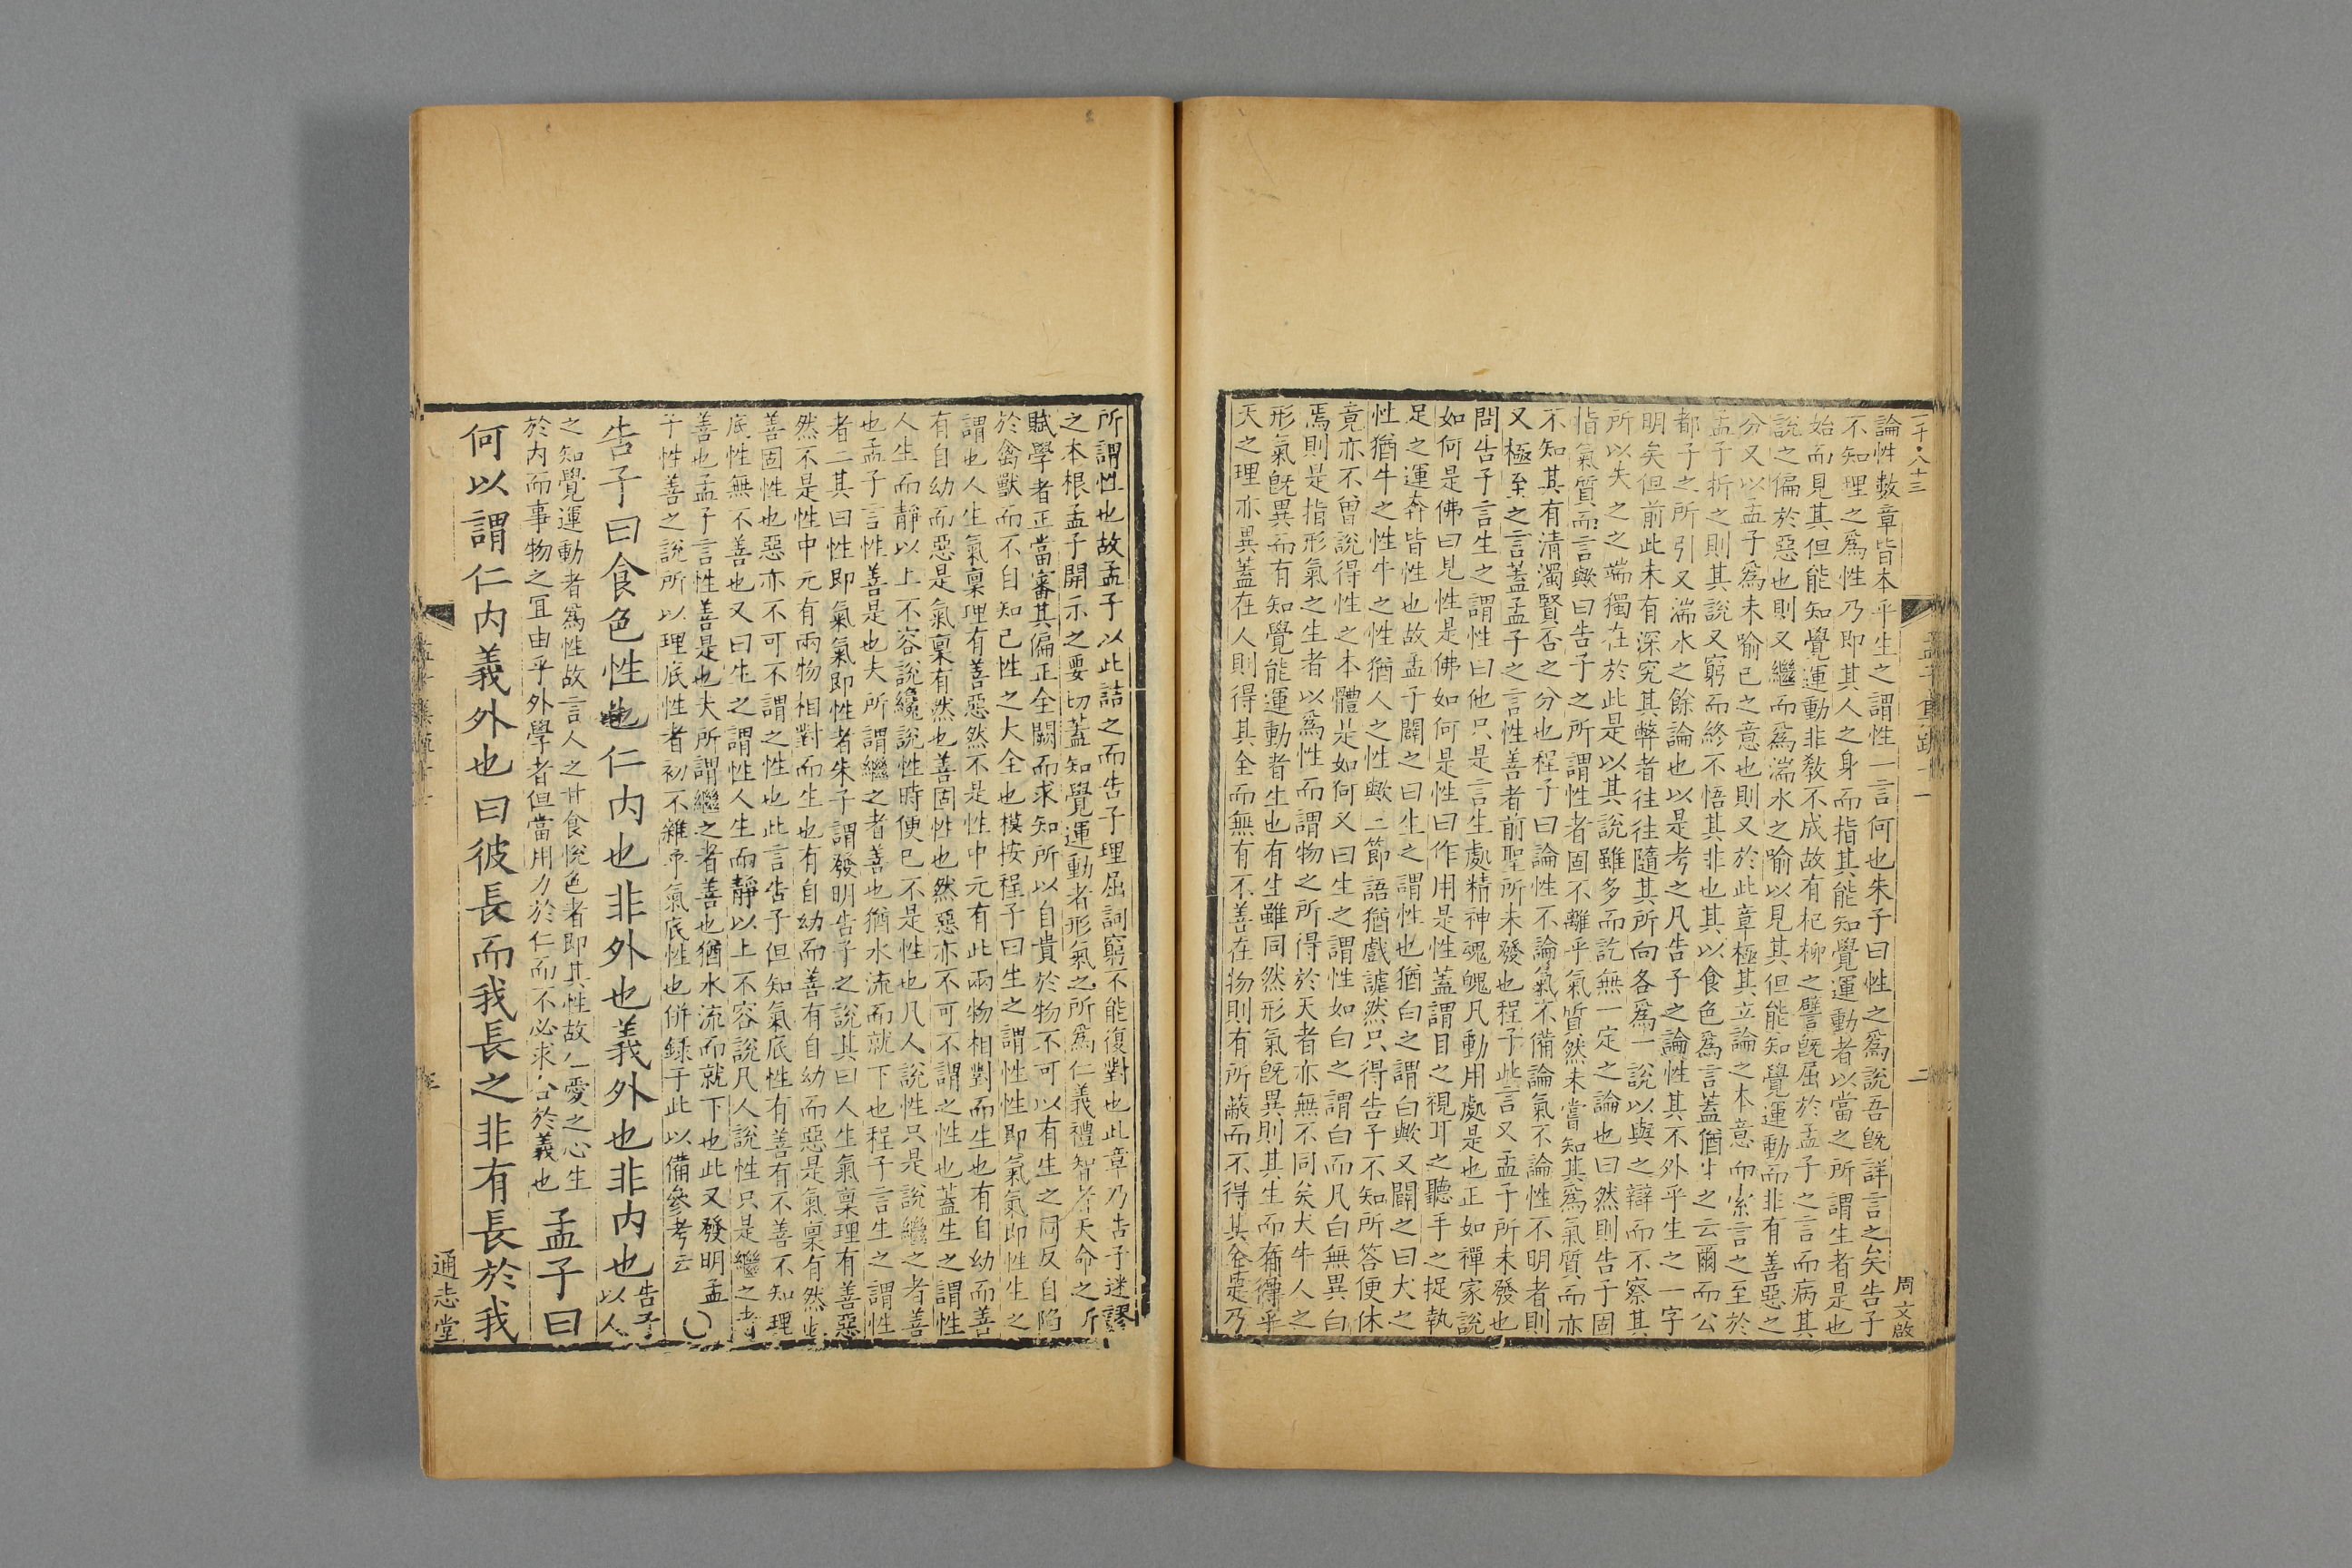 論性數章皆本乎生之謂性一言何也朱子曰性之爲說吾旣詳言之矣告子
不知理之爲性乃即其人之身而指其能知覺運動者以當之所謂生者是也
始而見其但能知覺運動非敎不成故有杞柳之譬旣屈於孟子之言而病其
說之偏於惡也則又繼而爲湍水之喻以見其但能知覺運動而非有善惡之
分又以孟子爲未喻己之意也則又於此章極其立論之本意而索言之至於
孟子折之則其說又窮而終不悟其非也其以食色爲言蓋猶生之云爾而公
都子之所引又湍水之餘論也以是考之凡告子之論性其不外乎生之一字
明矣但前此未有深究其弊者往往隨其所向各爲一說以與之辯而不察其
所以失之之端獨在於此是以其說雖多而訖無一定之論也曰然則告子固
指氣質而言歟曰告子之所謂性者固不離乎氣質然未嘗知其爲氣質而亦
不知其有清濁賢否之分也程子曰論性不論氣不備論氣不論性不明者則
又極至之言蓋孟子之言性善者前聖所未發也程子此言又孟子所未發也
問告子言生之謂性曰他只是言生處精神魂魄凡動用處是也正如禪家說
如何是佛曰見性是佛如何是性曰作用是性蓋謂目之視耳之聽手之捉執
足之運奔皆性也故孟子闢之曰生之謂性也猶白之謂白歟又闢之曰犬之
性猶牛之性牛之性猶人之性歟二節語猶戲謔然只得告子不知所答便休
竟亦不曾說得性之本體是如何又曰生之謂性如白之謂白而凡白無異白
焉則是指形氣之生者以爲性而謂物之所得於天者亦無不同矣犬牛人之
形氣旣異而有知覺能運動者生也有生雖同然形氣旣異則其生而有得乎
天之理亦異蓋在人則得其全而無有不善在物則有所蔽而不得其全是乃
周文啟
孟子集疏十一
二
所謂性也故孟子以此詰之而告子理屈詞窮不能復對也此章乃告子迷謬
之本根孟子開示之要切蓋知覺運動者形氣之所爲仁義禮智者天命之所
賦學者正當審其偏正全闕而求知所以自貴於物不可以有生之同反自陷
於禽獸而不自知己性之大全也模按程子曰生之謂性性即氣氣即性生之
謂也人生氣稟理有善惡然不是性中元有此兩物相對而生也有自幼而善
有自幼而惡是氣稟有然也善固性也然惡亦不可不謂之性也蓋生之謂性
人生而靜以上不容說纔說性時便已不是性也凡人說性只是說繼之者善
也孟子言性善是也夫所謂繼之者善也猶水流而就下也程子言生之謂性
者二其曰性即氣氣即性者朱子謂發明告子之說其曰人生氣稟理有善惡
然不是性中元有兩物相對而生也有自幼而善有自幼而惡是氣稟有然也
善固性也惡亦不可不謂之性也此言告子但知氣底性有善有不善不知理
底性無不善也又曰生之謂性人生而靜以上不容說凡人說性只是繼之者
善也孟子言性善是也夫所謂繼之者善也猶水流而就下也此又發明孟
子性善之說所以理底性者初不雜乎氣底性也併録于此以備參考云 〇
告子曰食色性也仁内也非外也義外也非内也告子以人
之知覺運動者爲性故言人之甘食悅色者即其性故仁愛之心生
於内而事物之宜由乎外學者但當用力於仁而不必求合於義也 孟子曰
何以謂仁内義外也曰彼長而我長之非有長於我
通志堂